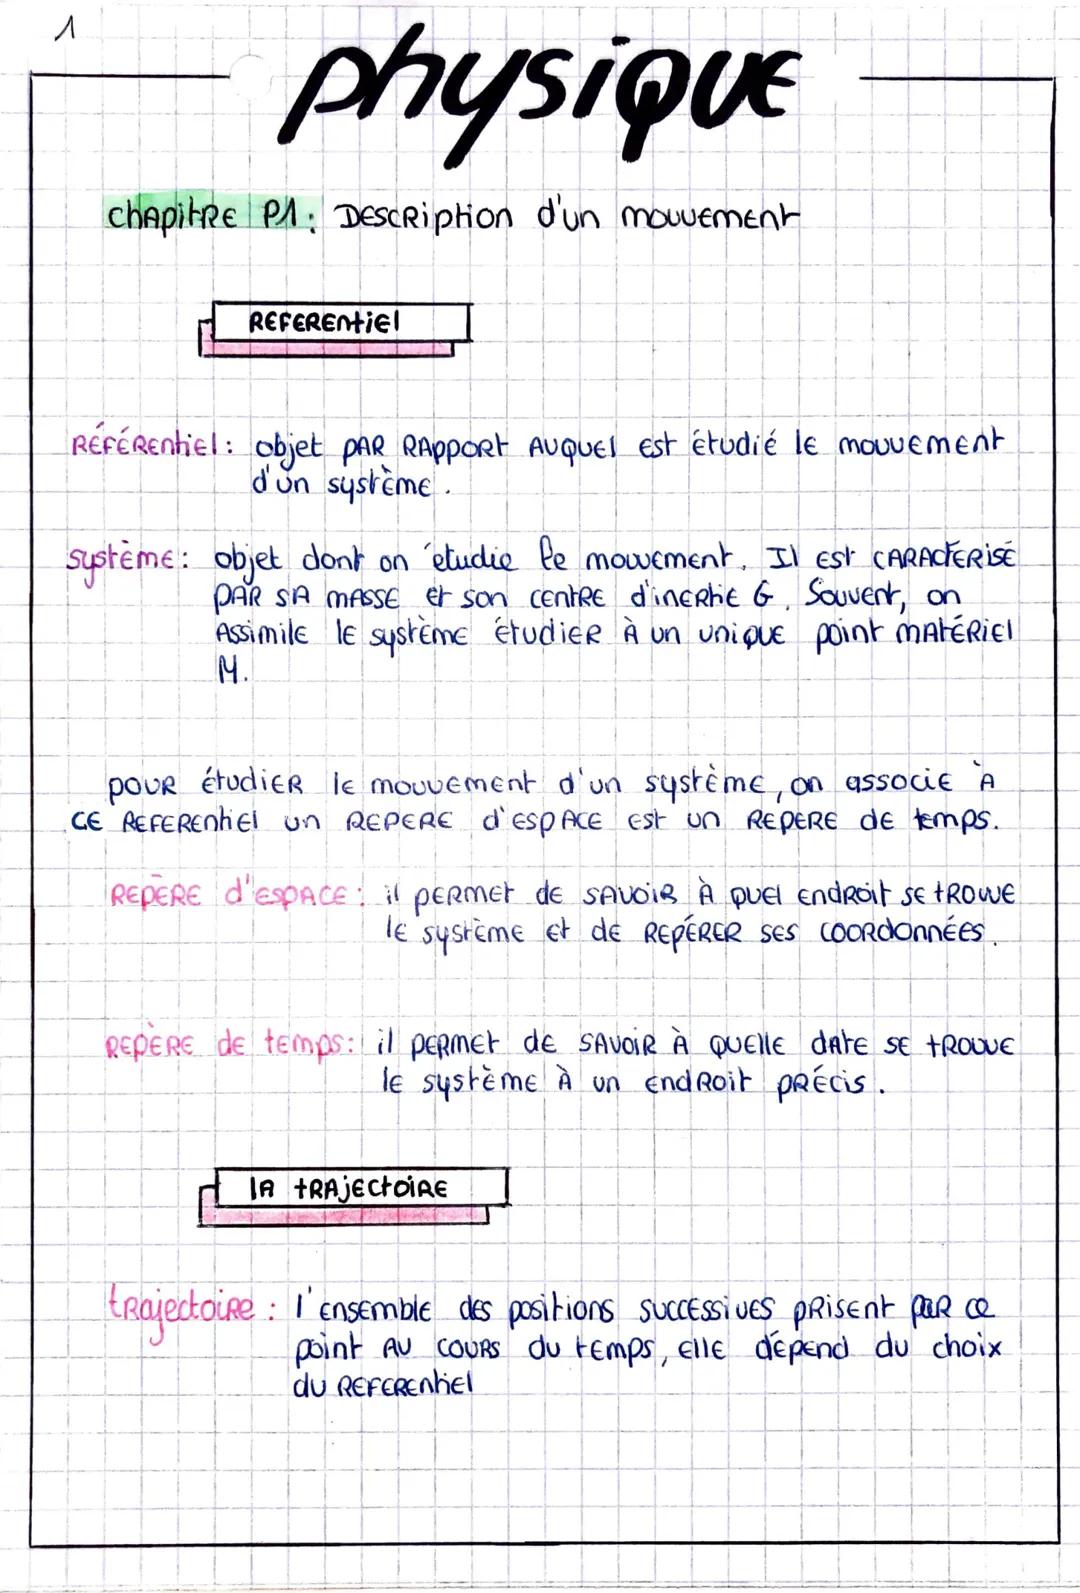 1
physique
chapitre P1 : Description d'un mouvement
REFERENtiel
RÉFÉRENtiel : objet PAR RAPPORT AUQUEl EST étudié lE mouvement
d'un système.
système : objet dont on étudie le mouvement. Il EST CARACTÉRISÉ
PAR SA MASSE Et son CENTRE d'INERtIE G. Souvent, on
Assimile lE système étudier À un unique point MATÉRIEl
M.
pour étudier lE mouvement d'un système, on associe À
CE REFERENtiel un REPERE d'ESPACE EST un REPERE de temps.
REPÈRE d'ESPACE : il PERMET de SAVOIR À QUEl ENDROIT SE TROUVE
lE système Et dE REPÉRER SES COORDONNÉES.
REPÈRE de temps : il PERMET dE SAVOIR À QUEllE dATE SE TROUVE
lE système À un ENDROIT PRÉCIS.
lA TRAJECTOIRE
trajectoire : l'ENSEMBlE des positions SUCCESSIVES PRISENT PAR ce
point AU COURS du temps, EllE dépend du choix
du REFERENtiel